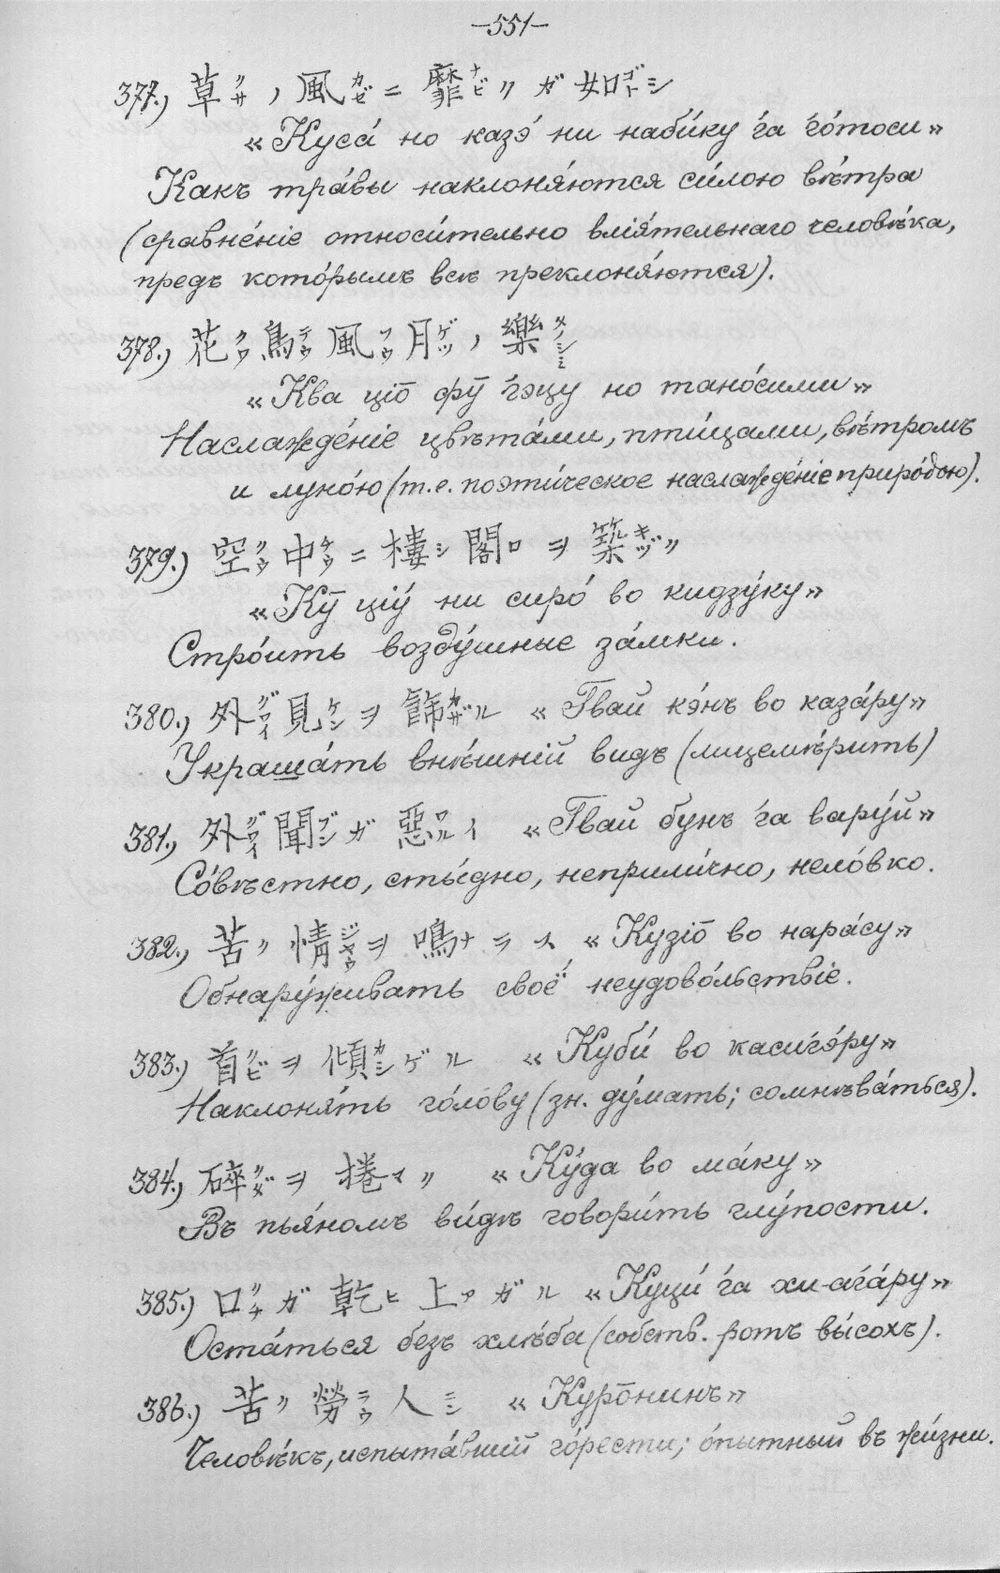 —551—
377.) 草クサノ風カゼニ靡ナビクガ如ゴトシ
«Куса́ но казэ́ ни наби́ку г̇а г̇о́тоси»
Какъ тра́вы наклоня́ются си́лою вѣ́тра
(сравне́нiе относи́тельно влiя́тельнаго человѣ́ка,
предъ кото́рымъ всѣ преклоня́ются).
378.) 花クワ鳥テウ風フウ月ゲツノ樂タノシミ
«Ква цiо̄ фӯ г̇эцу но тано́сими»
Наслажде́нiе цвѣта́ми, пти́цами, вѣ́тромъ
и луно́ю (т.е. поэти́ческое наслажде́нiе приро́дою).
379.) 空クウ中チウニ樓シ閣ロヲ築キヅク
«Кӯ цiу́ ни сиро́ во кидзу́ку»
Стро́ить возду́шные за́мки.
380.) 外グワイ見ケンヲ飾カザル «Гвай кэ́нъ во каза́ру»
Украша́ть внѣ́шнiй видъ (лицемѣ́рить)
381.) 外グワイ聞ブンガ惡ワルイ «Гвай бунъ г̇а вару́й»
Со́вѣстно, сты́дно, неприли́чно, нело́вко.
382.) 苦ク情ジヤウヲ鳴ナラス «Кузiо̄ во нара́су»
Обнару́живать своё неудово́льствiе.
383.) 首クビヲ傾カシゲル «Куби́ во касиг̇э́ру»
Наклоня́ть го́лову (зн. ду́мать; сомнѣва́ться).
384.) 碎クダヲ捲マク «Ку́да во ма́ку»
Въ пья́номъ ви́дѣ говори́ть глу́пости.
385.) 口クチガ乾ヒ上アガル «Куци́ г̇а хи-аг̇а́ру»
Оста́ться безъ хлѣ́ба (собств. ротъ вы́сохъ).
386.) 苦ク勞ラウ人ニン «Куро̄нинъ»
Человѣ́къ, испыта́вшiй го́рести; о́пытный въ жи́зни.